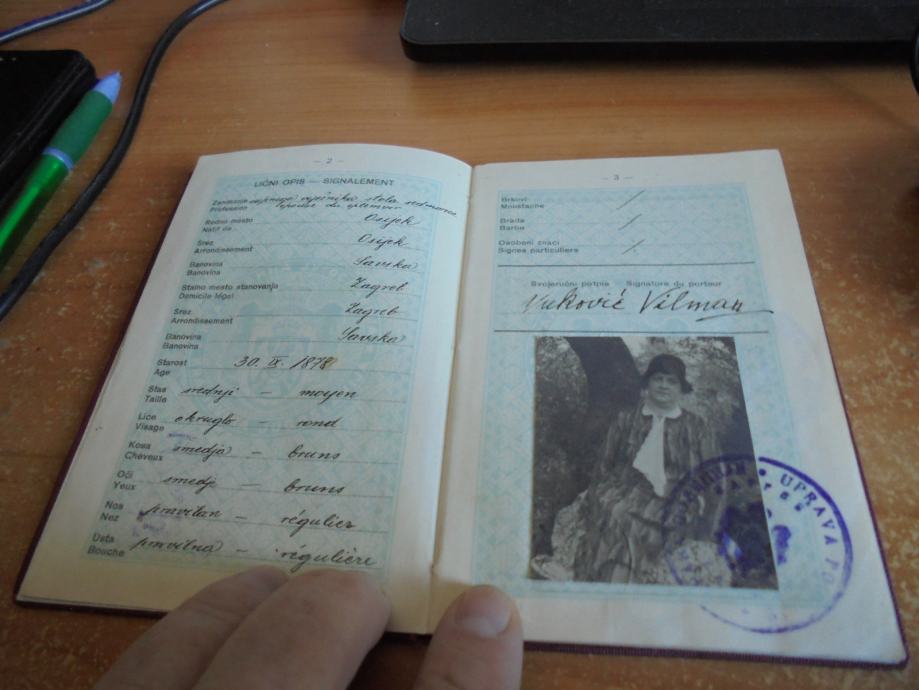 — 2 —
LIČNI OPIS — SIGNALEMENT
Zanimanje supruga stola sedmorice
Profession épouse du
Rodno mesto Osijek
Natif de
Srez Osijek
Arrondissement
Banovina Savska
Banovina
Stalno mesto stanovanja Zagreb
Domicile légal
Srez Zagreb
Arrondissement
Banovina Savska
Banovina
Starost 30. IX. 1878
Age
Stas srednji — moyen
Taille
Lice okruglo — rond
Visage
Kosa smedja — bruns
Cheveux
Oči smedje — bruns
Yeux
Nos pravilan — régulier
Nez
Usta pravilna — régulière
Bouche
— 3 —
Brkovi /
Moustache
Brada /
Barbe
Osobeni znaci /
Signes particuliers
Svojeručni potpis Signature du porteur
Vuković Vilma
UPRAVA PO